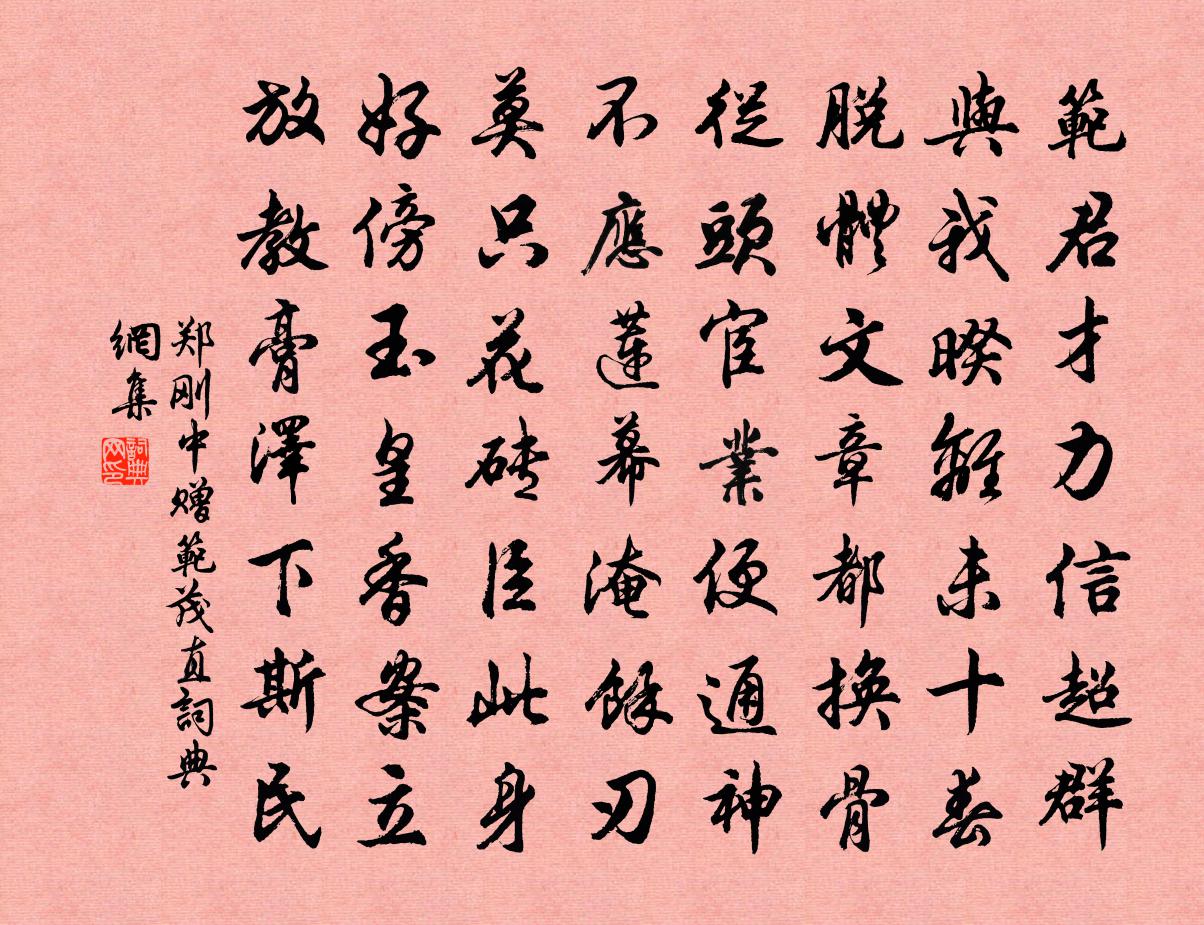 範君才力信超群
與我暌離未十春
脱體文章都換骨
從頭宦業便通神
不應蓮幕淹餘刃
莫只花磚臣此身
好傍玉皇香案立
放教膏澤下斯民
郑刚中赠範茂直詞典
網集
詞典
网印